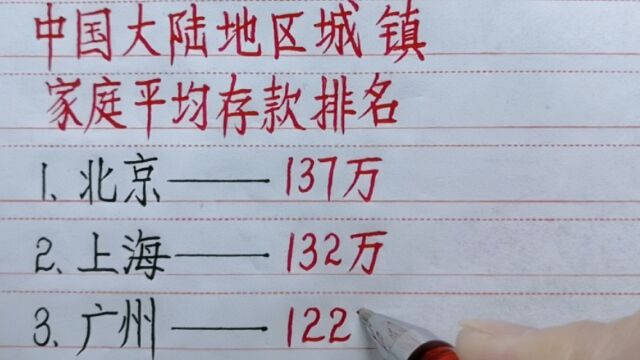 中国大陆地区城镇
家庭平均存款排名
1、北京——137万
2、上海——132万
3、广州——122